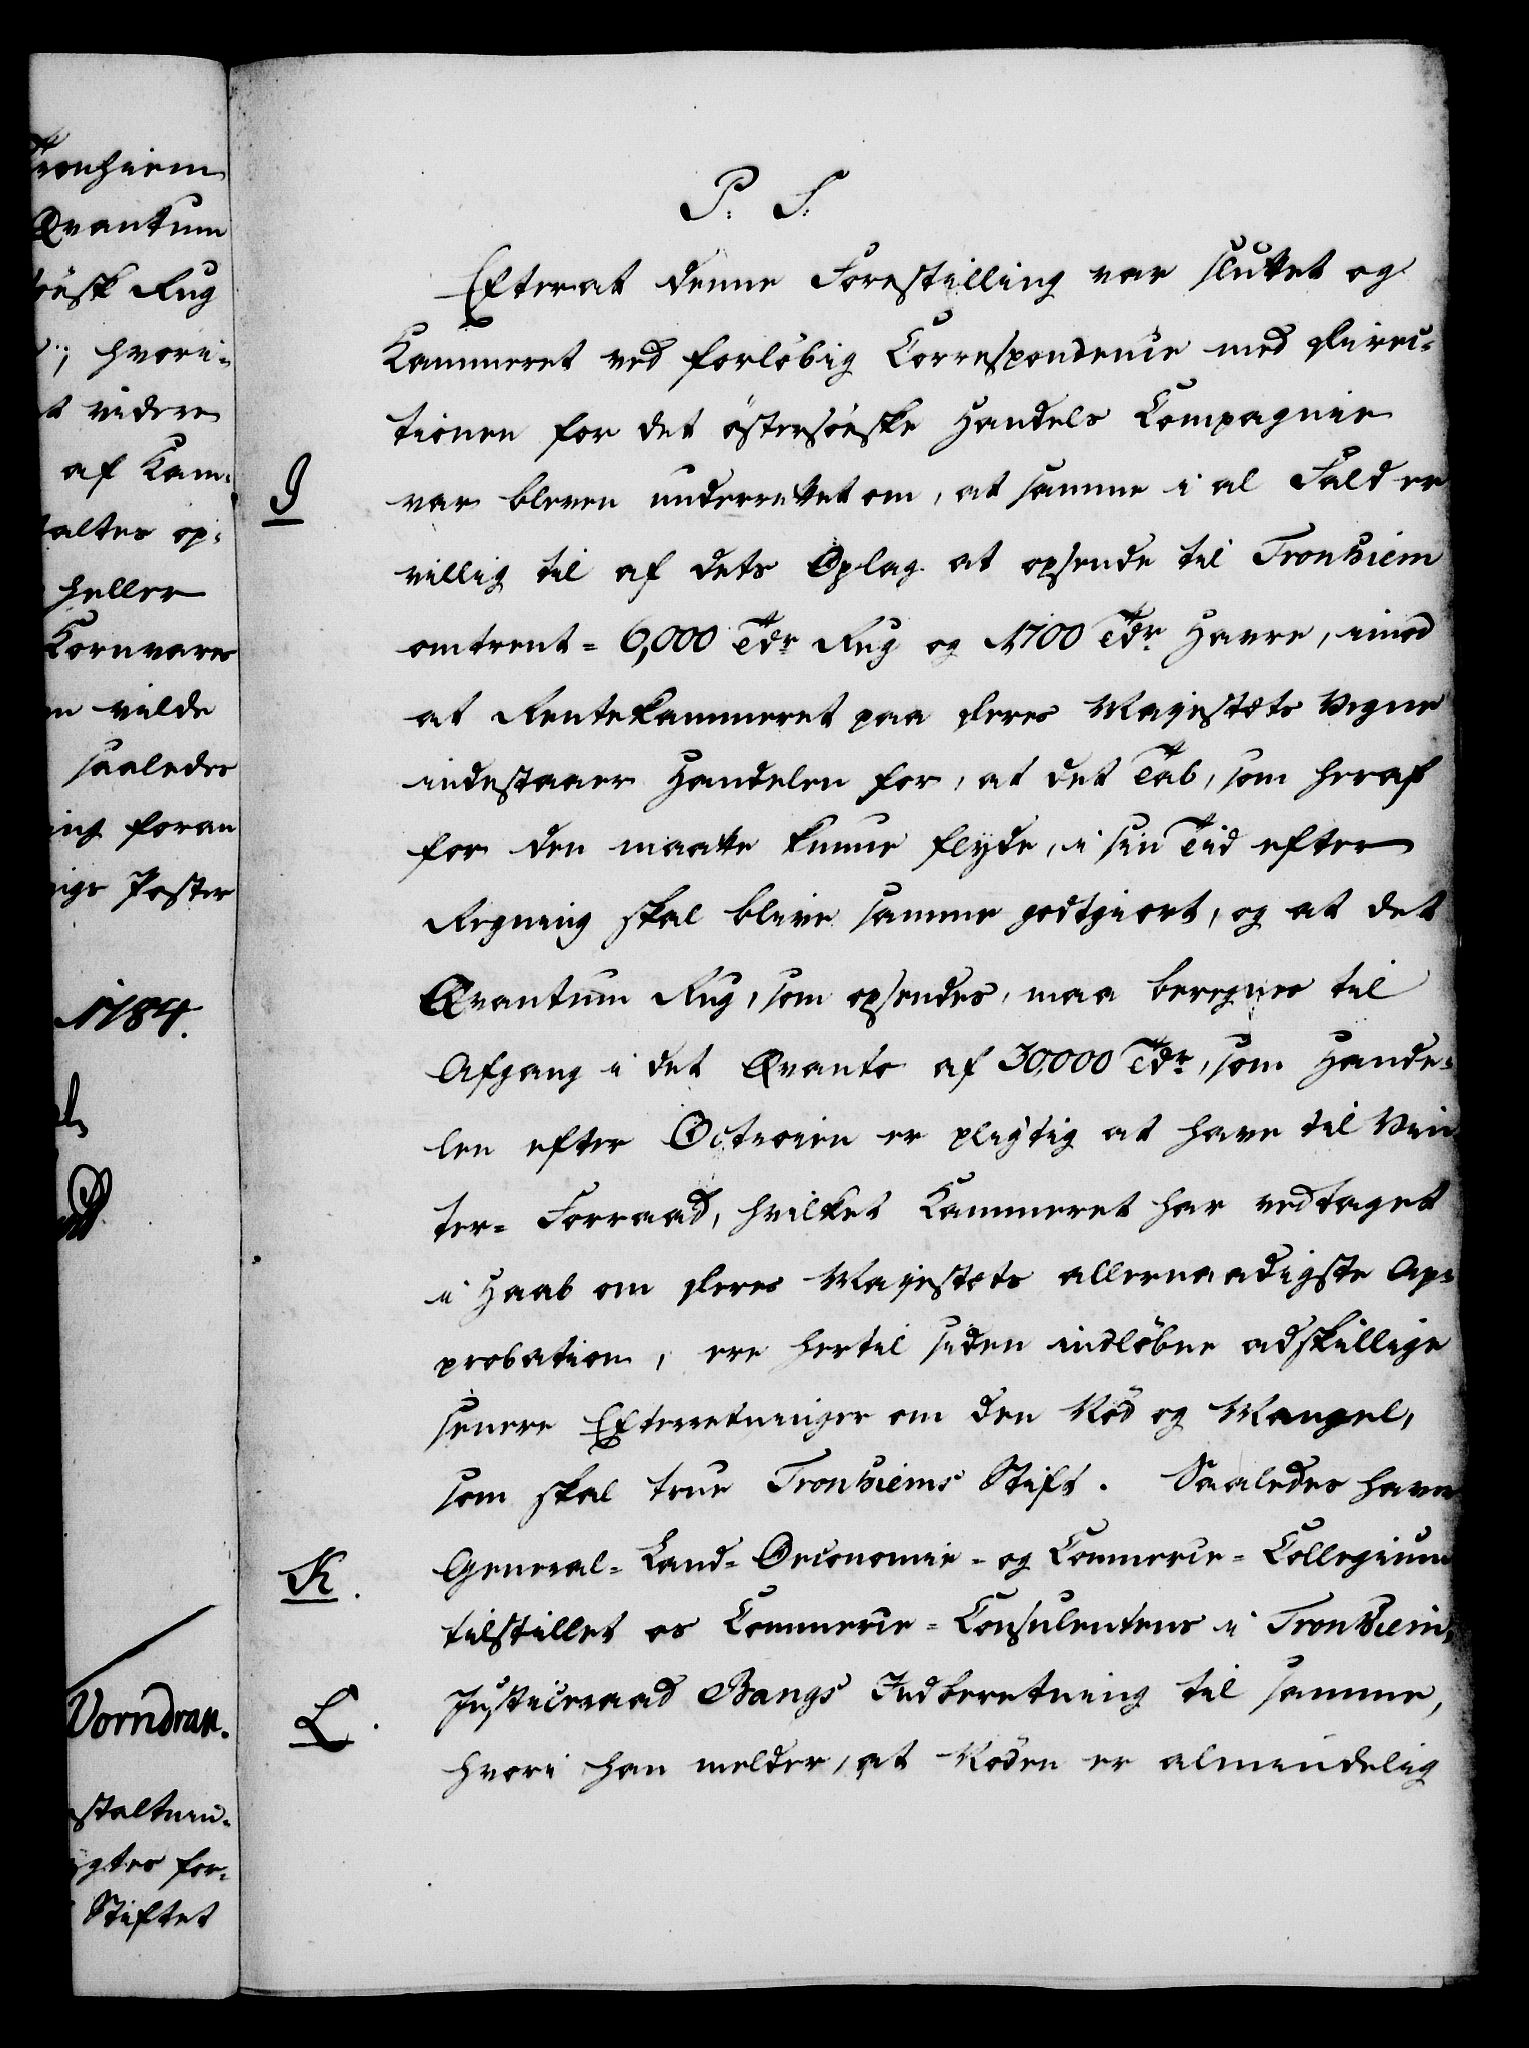 Tronhiem
Qvantum
söesk Rug
hvori-
t videre
af Kam-
taltes op-
heller
Kornvares
en vilde
saaledes
ing foran
rige Poster
1784.
Vorndran.
staltnin-
igtes for-
Stiftet
P. S.
Efterat denne Forestilling var sluttet og
Kammeret ved forløbig Correspondence med Direc-
tionen for det östersöeske Handels Compagnie
I
var bleven underrettet om, at samme i al Fald er
villig til af dets Oplag at opsende til Tronhiem
omtrent = 6,000 Tdr Rug og 1700 Tdr Havre, imod
at Rentekammeret paa Deres Majestæts Vegne
indestaaer Handelen for, at det Tab, som heraf
for den maatte kunne flyde, i sin Tid efter
Regning skal blive samme godtgiort, og at det
Qvantum Rug, som opsendes, maa beregnes til
Afgang i det Qvanto af 30,000 Tdr, som Hande-
len efter Octroien er pligtig at have til Vin
ter= Forraad, hvilket Kammeret har vedtaget
i Haab om Deres Majestæts allernaadigste Ap-
probation, ere hertil siden indløbne adskillige
senere Efterretninger om den Nöd og Mangel,
som skal true Tronhiems Stift. Saaledes have
K.
General= Land= Oeconomie= og Commerce= Collegium
tilstillet os Commerce= Consulentens i Tronhiem,
L.
Justiceraad Bangs Indberetning til samme,
hvori han melder, at Nöden er almindelig